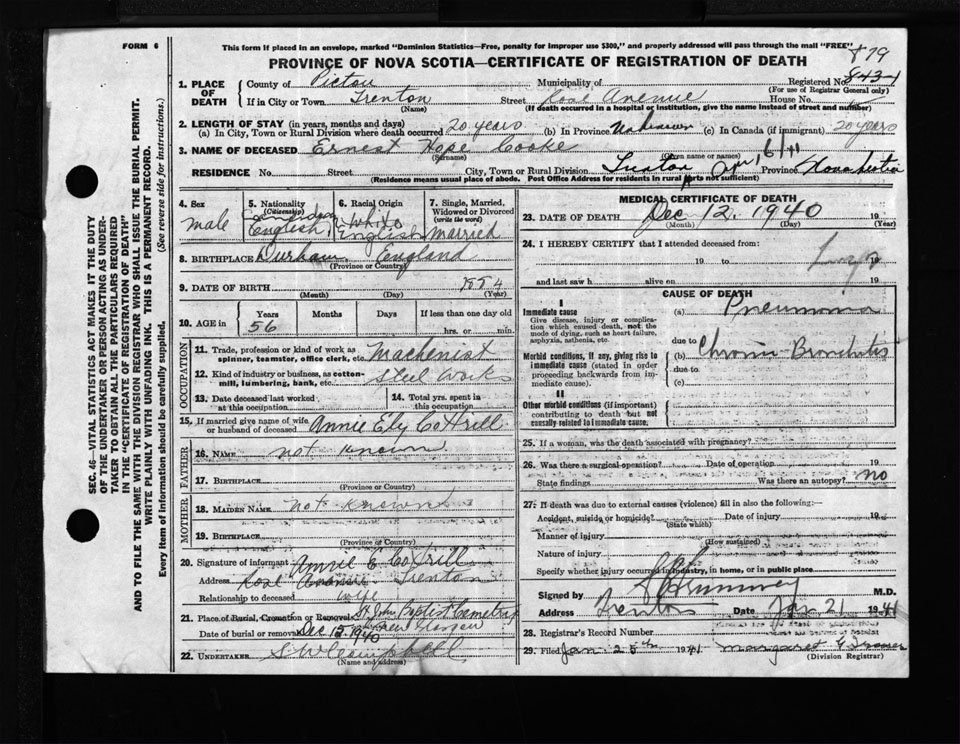 FORM 6
This form if placed in an envelope, marked "Dominion Statistics—Free, penalty for improper use $300," and properly addressed will pass through the mail "FREE"
879
PROVINCE OF NOVA SCOTIA—CERTIFICATE OF REGISTRATION OF DEATH
1. PLACE OF DEATH County of Pictou Municipality of Registered No.
(For use of Registrar General only)
If in City or Town Trenton Street Rose Avenue House No.
(Name) (If death occurred in a hospital or institution, give the name instead of street and number)
2. LENGTH OF STAY (in years, months and days)
(a) In City, Town or Rural Division where death occurred 20 years (b) In Province (c) In Canada (if immigrant) 20 years
3. NAME OF DECEASED Ernest Hope Cooke
(Surname) (Given name or names)
RESIDENCE No. Street City, Town or Rural Division Trenton Province Nova Scotia
(Residence means usual place of abode. Post Office Address for residents in rural parts not sufficient)
4. Sex 5. Nationality (Citizenship) 6. Racial Origin 7. Single, Married, Widowed or Divorced (write the word)
male Canadian English White English married
8. BIRTHPLACE Durham England
(Province or Country)
9. DATE OF BIRTH
(Month) (Day) (Year)
10. AGE in Years Months Days If less than one day old
56 hrs. or min.
OCCUPATION
11. Trade, profession or kind of work as spinner, teamster, office clerk, etc. Machenist
12. Kind of industry or business, as cotton-mill, lumbering, bank, etc. Steel Works
13. Date deceased last worked at this occupation 14. Total yrs. spent in this occupation
15. If married give name of wife or husband of deceased Annie Ely Cottrell
FATHER
16. NAME not known
17. BIRTHPLACE
(Province or Country)
MOTHER
18. MAIDEN NAME not known
19. BIRTHPLACE
(Province or Country)
20. Signature of informant Annie E Cottrell
Address Rose Avenue Trenton
Relationship to deceased wife
21. Place of Burial, Cremation or Removal St John Baptist Cemetery
Date of burial or removal Dec 15 1940 New Glasgow
22. UNDERTAKER S W Campbell
(Name and address)
MEDICAL CERTIFICATE OF DEATH
23. DATE OF DEATH Dec 12. 1940 19
(Month) (Day) (Year)
24. I HEREBY CERTIFY that I attended deceased from:
19 to 19
and last saw h alive on 19
CAUSE OF DEATH
I
Immediate cause
Give disease, injury or complication which caused death, not the mode of dying, such as heart failure, asphyxia, asthenia, etc.
(a) Pneumonia
due to
Morbid conditions, if any, giving rise to immediate cause (stated in order proceeding backwards from immediate cause).
(b) Chronic Bronchitis
due to
(c)
II
Other morbid conditions (if important) contributing to death but not causally related to immediate cause.
25. If a woman, was the death associated with pregnancy?
26. Was there a surgical operation? Date of operation 19
State findings Was there an autopsy? no
27. If death was due to external causes (violence) fill in also the following:—
Accident, suicide or homicide? Date of injury 19
(State which)
Manner of injury
(How sustained)
Nature of injury
Specify whether injury occurred in industry, in home, or in public place
Signed by M.D.
Address Trenton Date Jan 21 1941
28. Registrar's Record Number
29. Filed Jan 25th 1941 Margaret
(Division Registrar)
SEC. 46—VITAL STATISTICS ACT MAKES IT THE DUTY
OF THE UNDERTAKER OR PERSON ACTING AS UNDER-
TAKER TO OBTAIN ALL THE PARTICULARS REQUIRED
IN THE "CERTIFICATE OF REGISTRATION OF DEATH"
AND TO FILE THE SAME WITH THE DIVISION REGISTRAR WHO SHALL ISSUE THE BURIAL PERMIT.
WRITE PLAINLY WITH UNFADING INK. THIS IS A PERMANENT RECORD.
Every item of information should be carefully supplied. (See reverse side for instructions.)